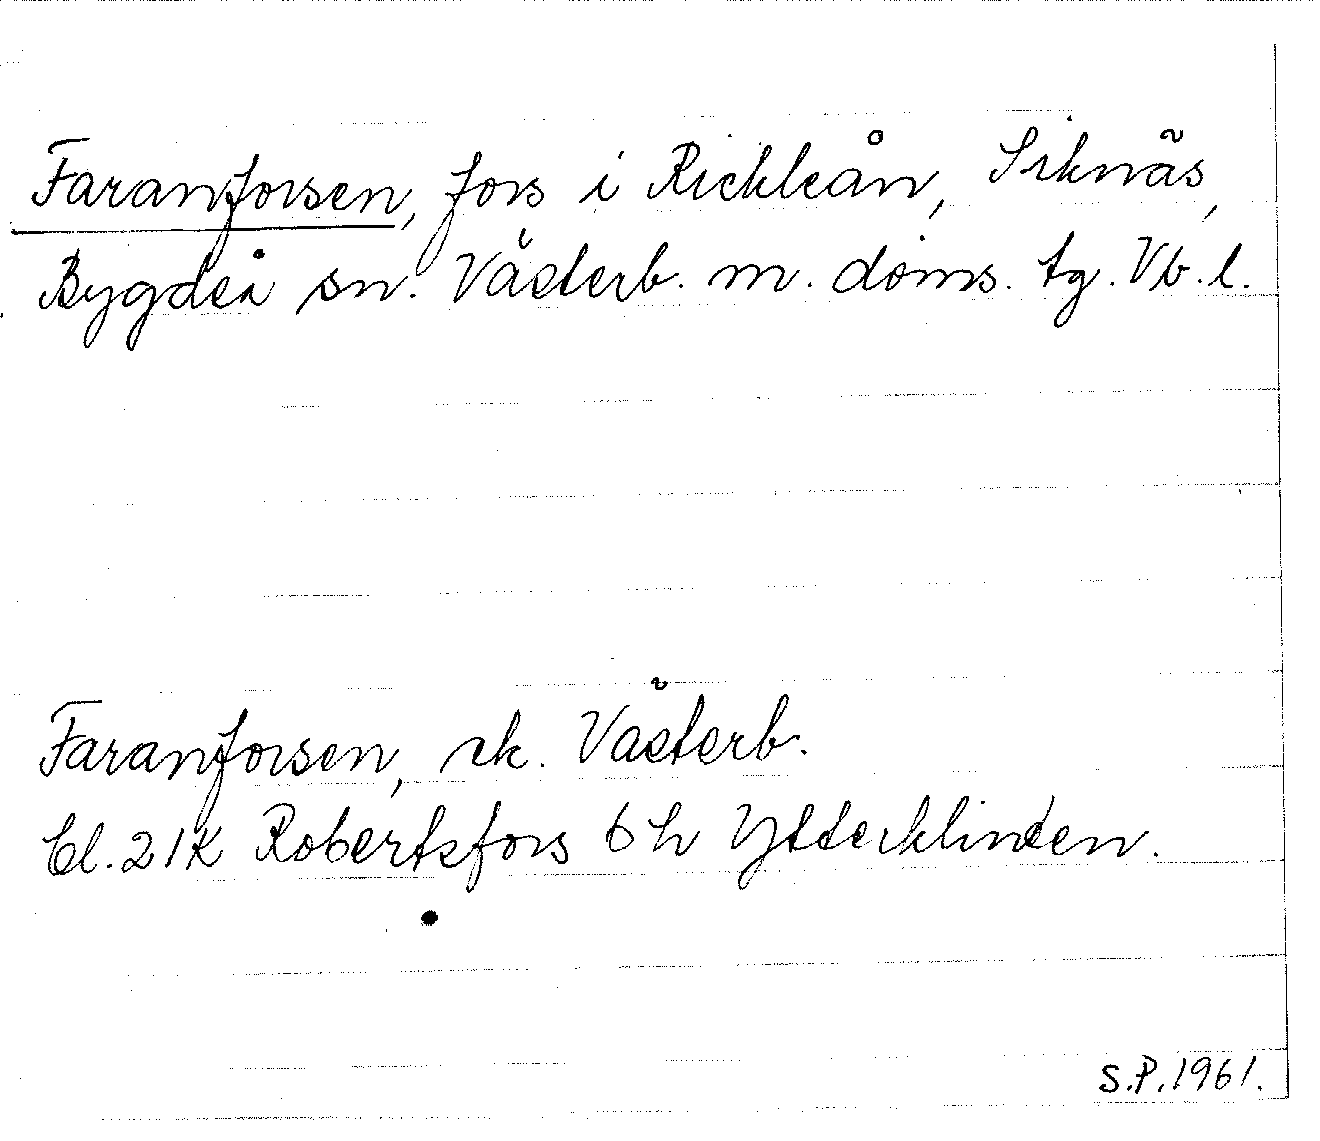 Faranforsen, fors i Rickleån, Siknäs,
Bygdeå sn. Västerb. m. doms. tg. Vb. l.
Faranforsen, ek. Västerb.
bl. 21K Robertsfors 6 h Ytterklinten.
S.P. 1961.